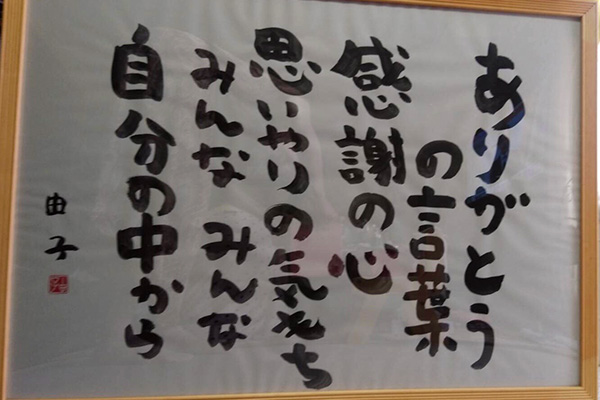 ありがとう
の言葉
感謝の心
思いやりの気もち
みんな みんな
自分の中から
由子